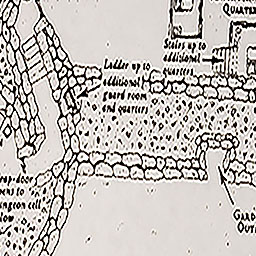 QUARTER
Stairs up to
additional
quarters
Ladder up to
additional
guard room
and quarters
rap-door
pens to
ungeon cell
low
GARD
OUT